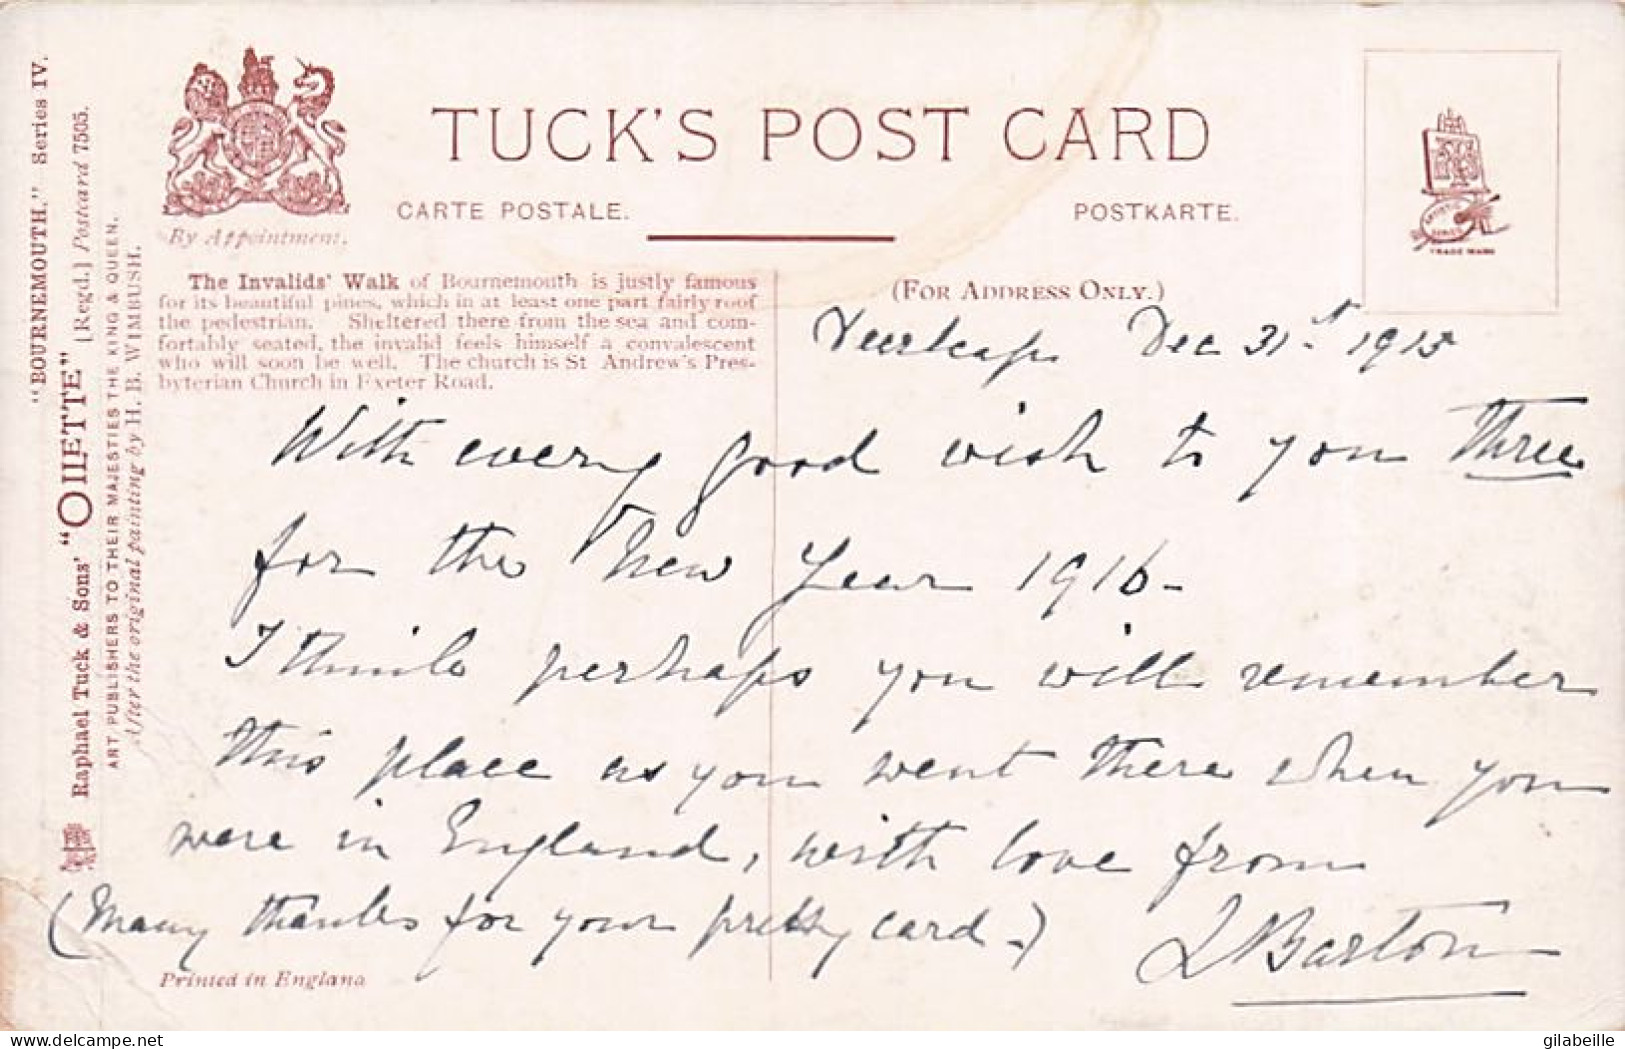 TUCK'S POST CARD
CARTE POSTALE.
POSTKARTE.
By Appointment.
(FOR ADDRESS ONLY.)
TRADE MARK
"BOURNEMOUTH." Series IV.
Raphael Tuck & Sons' "OILETTE" [Regd.] Postcard 7505.
ART PUBLISHERS TO THEIR MAJESTIES THE KING & QUEEN.
After the original painting by H. B. WIMBUSH.
The Invalids' Walk of Bournemouth is justly famous
for its beautiful pines, which in at least one part fairly roof
the pedestrian. Sheltered there from the sea and com-
fortably seated, the invalid feels himself a convalescent
who will soon be well. The church is St Andrew's Pres-
byterian Church in Exeter Road.
Dec 31st 1915
With every good wish to you three
for the New Year 1916-
I think perhaps you will remember
this place as you went there when you
were in England, with love from
(Many thanks for your pretty card-)
L Barton
Printed in England
gilabeille